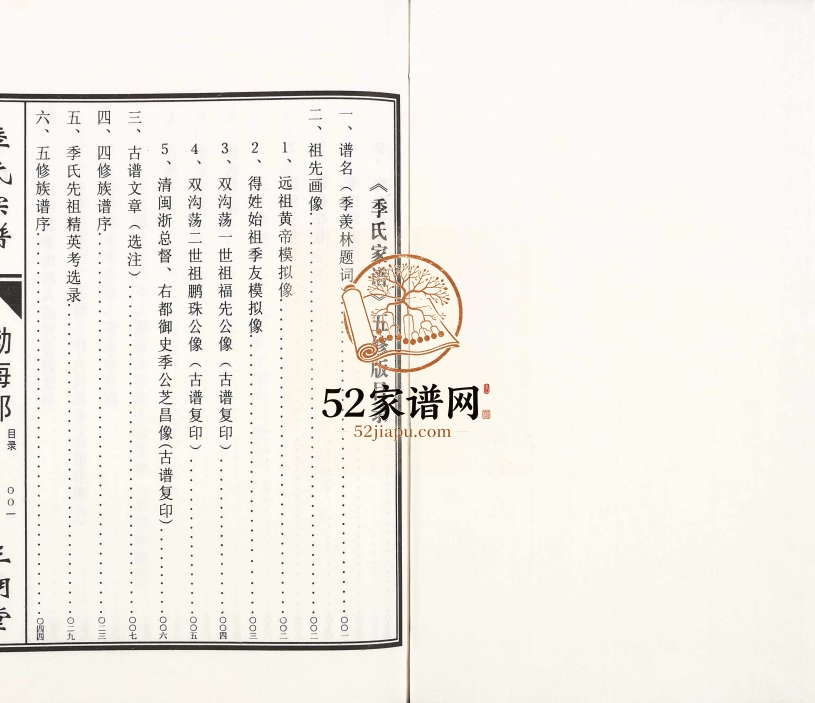 《季氏家谱》五修版目录
一、谱名（季羡林题词）……〇〇一
二、祖先画像……〇〇二
1、远祖黄帝模拟像……〇〇二
2、得姓始祖季友模拟像……〇〇三
3、双沟荡一世祖福先公像（古谱复印）……〇〇四
4、双沟荡二世祖鹏珠公像（古谱复印）……〇〇五
5、清闽浙总督、右都御史季公芝昌像（古谱复印）……〇〇六
三、古谱文章（选注）……〇〇七
四、四修族谱序……〇二三
五、季氏先祖精英考选录……〇二九
六、五修族谱序……〇四四
季氏宗谱
渤海郡
目录
〇〇一
三朝堂
52家谱网
52jiapu.com